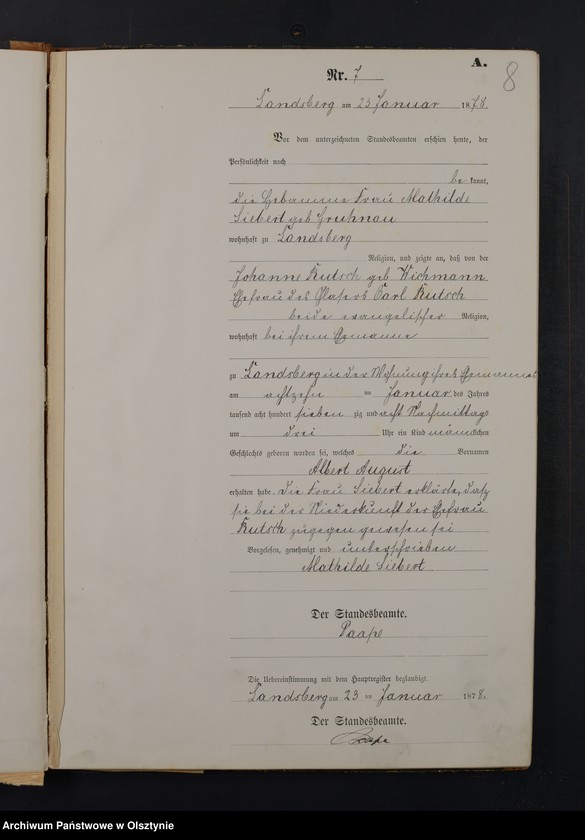 A.
8
Nr. 7
Landsberg am 23 Januar 1878.
Vor dem unterzeichneten Standesbeamten erschien heute, der
Persönlichkeit nach
bekannt,
die Hebamme Frau Mathilde
Siebert geb Gruhnau
wohnhaft zu Landsberg
Religion, und zeigte an, daß von der
Johanne Kutsch geb Wichmann
Ehefrau des Glasers Carl Kutsch
beide evangelischer Religion,
wohnhaft bei ihrem Ehemanne
zu Landsberg in der Wohnung ihres Ehemannes
am achtzehn ten Januar des Jahres
tausend acht hundert sieben zig und acht Nachmittags
um drei Uhr ein Kind männlichen
Geschlechts geboren worden sei, welches die Vornamen
Albert August
erhalten habe. Die Frau Siebert erklärte, daß
sie bei der Niederkunft der Ehefrau
Kutsch zugegen gewesen sei
Vorgelesen, genehmigt und unterschrieben
Mathilde Siebert
Der Standesbeamte.
Paape
Die Uebereinstimmung mit dem Hauptregister beglaubigt.
Landsberg am 23 ten Januar 1878.
Der Standesbeamte.
Paape
Archiwum Państwowe w Olsztynie